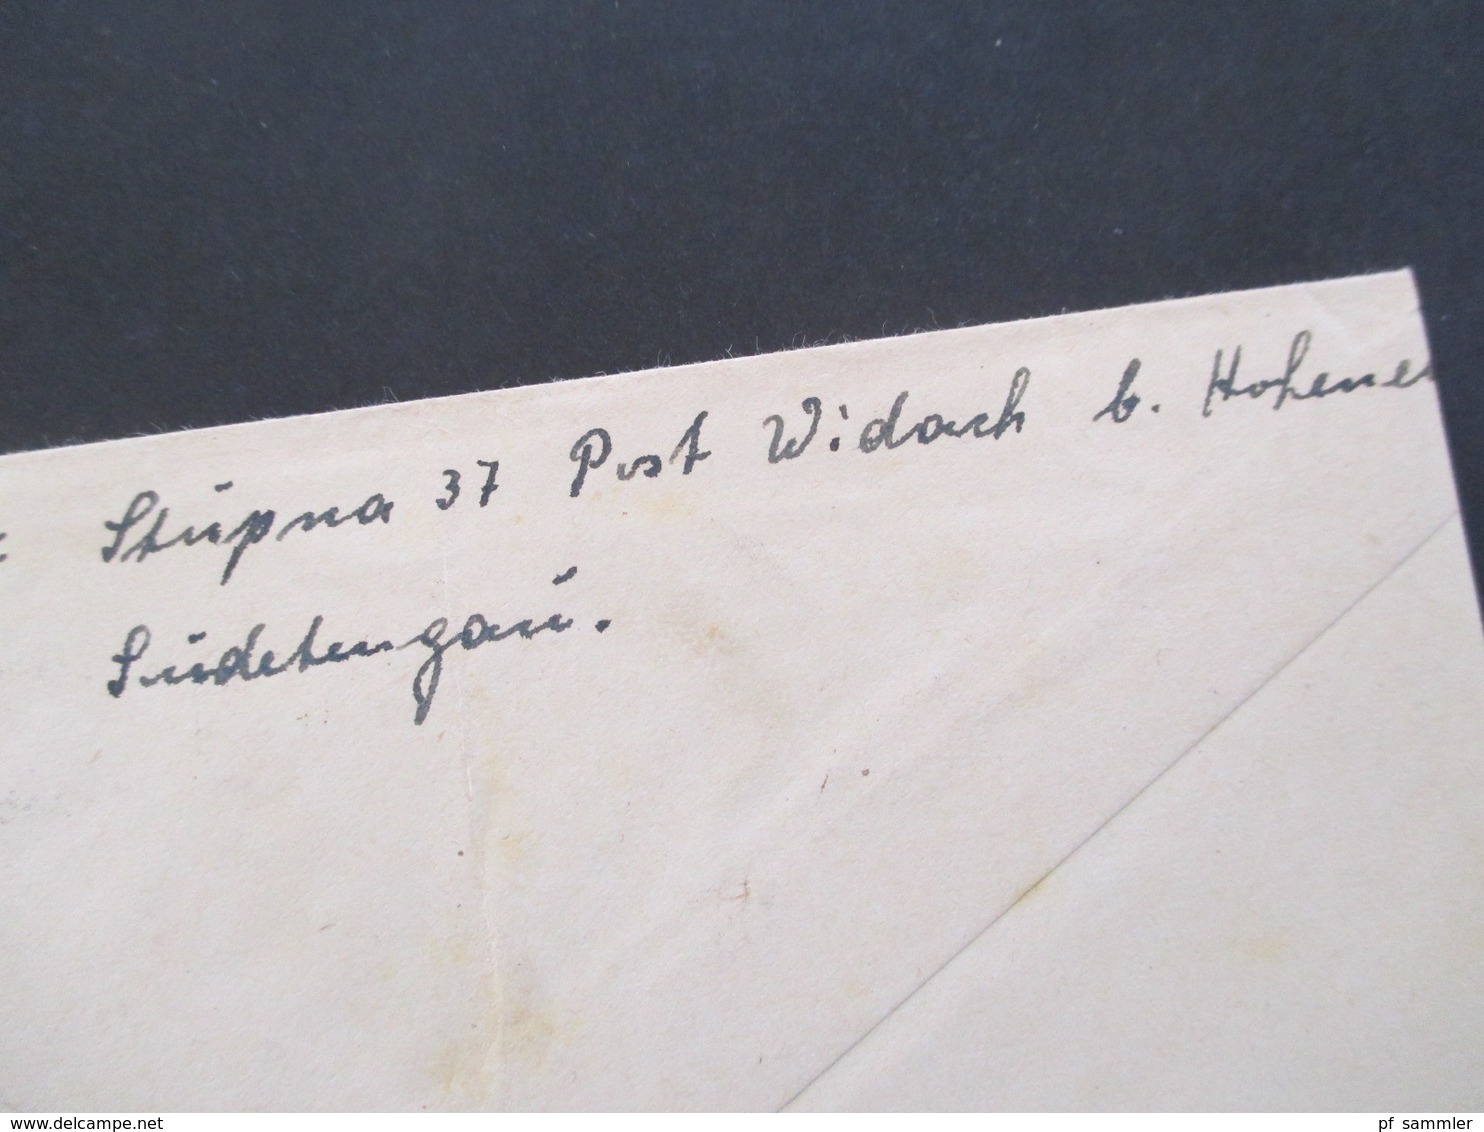 : Stupna 37 Post Widach b. Hohene
Sudetengau.
delcampe.net
pf_sammler